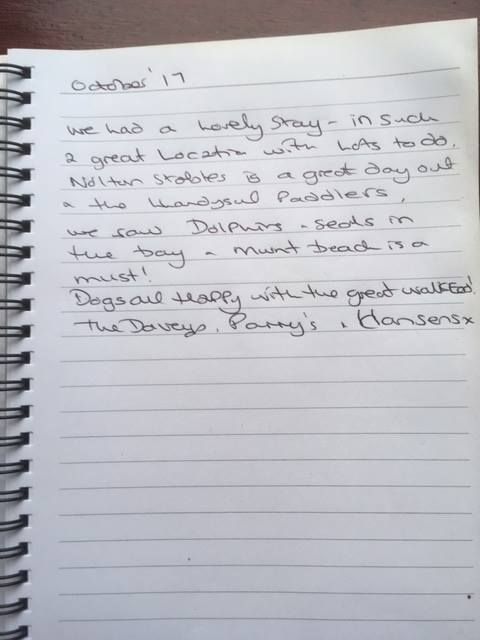 October '17
we had a lovely stay - in such
a great location with lots to do.
Nolton stables is a great day out
& the Llandysul Paddlers,
we saw Dolphins & seals in
the bay & mwnt beach is a
must!
Dogs all Happy with the great walks too!
the Daveys, Parry's & Hansens x